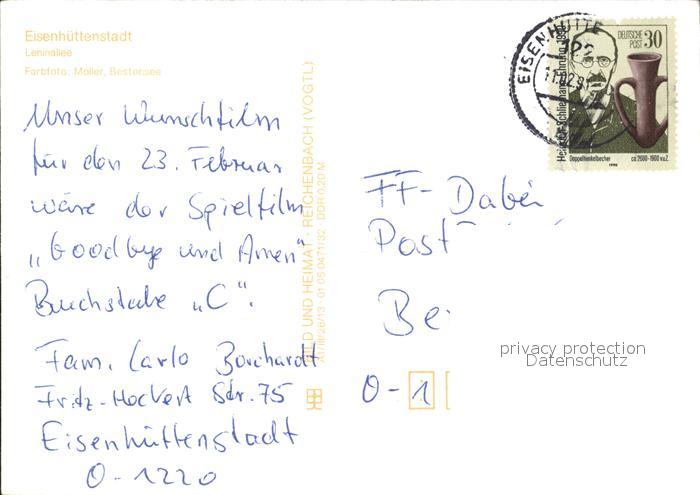 Eisenhüttenstadt
Leninallee
Farbfoto: Möller, Bestensee
Unser Wunschfilm
für den 23. Februar
wäre der Spielfilm
„Goodbye und Amen"
Buchstabe „C".
Fam. Carlo Borchardt
Fritz-Heckert Str. 75
Eisenhüttenstadt
O-1220
BILD UND HEIMAT REICHENBACH (VOGTL)
A1/III/26/13 · 01 05 0471/32 · DDR 0,20 M
EISENHÜTTE
122
DEUTSCHE
POST 30
Heinrich-Schliemann-Ehrung
Doppelhenkelbecher ca 2600-1900 v.u.Z.
1990
FF-Dabei
Post
Be
O-1
privacy protection
Datenschutz